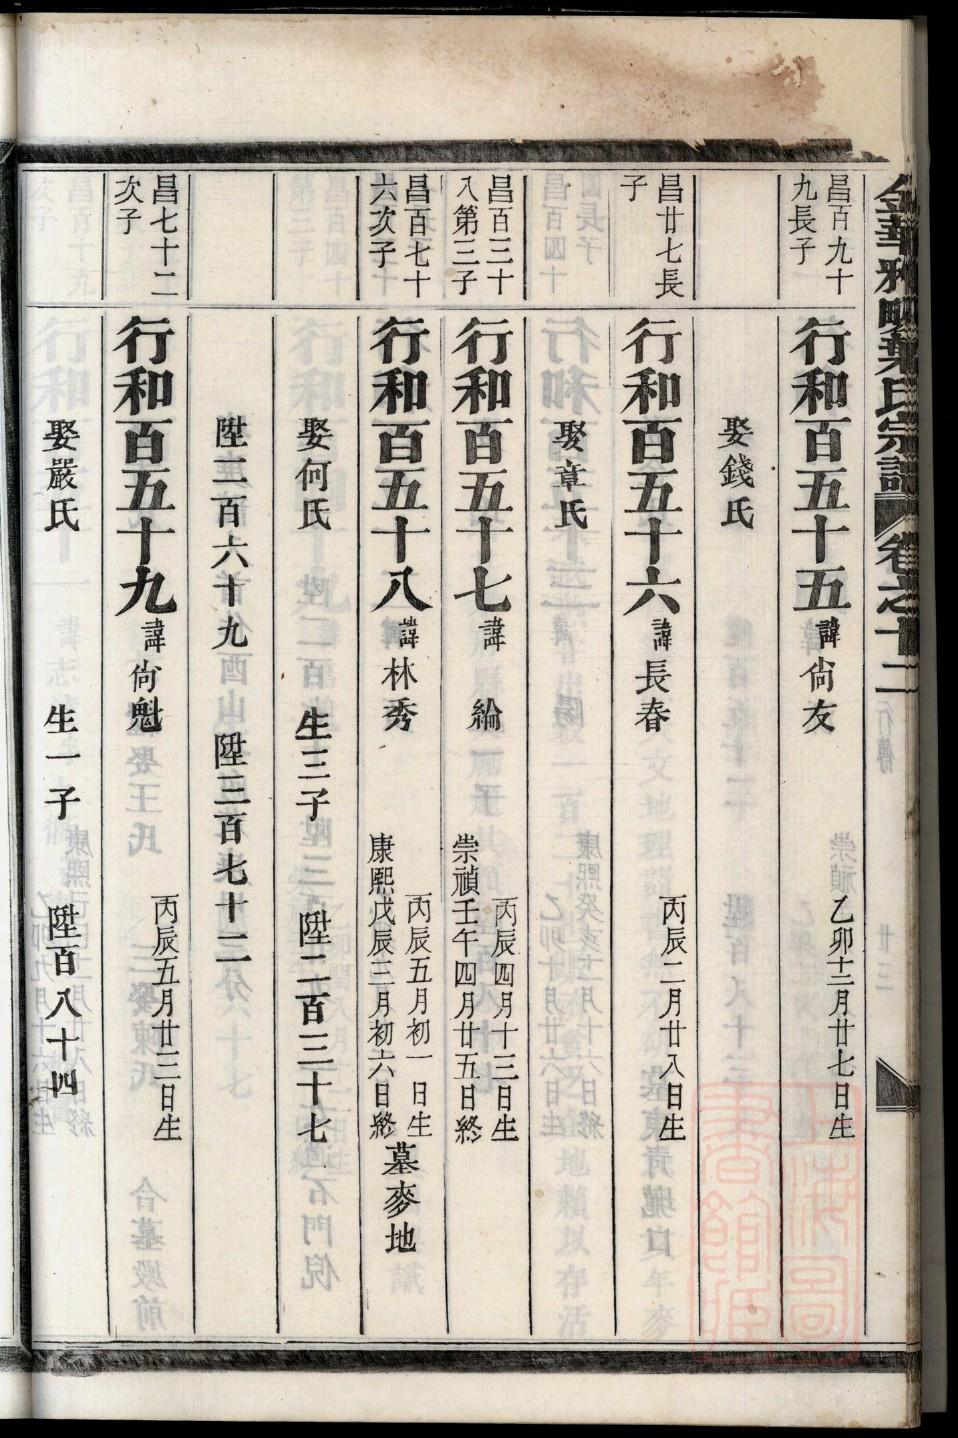 金華雅畈葉氏宗譜 卷之十二 行傳 廿三
昌百九十九長子
行和百五十五 諱尙友 崇禎乙卯十二月廿七日生
娶錢氏
昌廿七長子
行和百五十六 諱長春 丙辰二月廿八日生
娶章氏
昌百三十八第三子
行和百五十七 諱綸 丙辰四月十三日生
崇禎壬午四月廿五日終
昌百七十六次子
行和百五十八 諱林秀 丙辰五月初一日生
康熙戊辰三月初六日終 墓麥地
娶何氏 生三子 陞二百三十七
陞二百六十九 陞二百七十二
昌七十二次子
行和百五十九 諱尙魁 丙辰五月廿三日生
娶嚴氏 生一子 陞百八十四